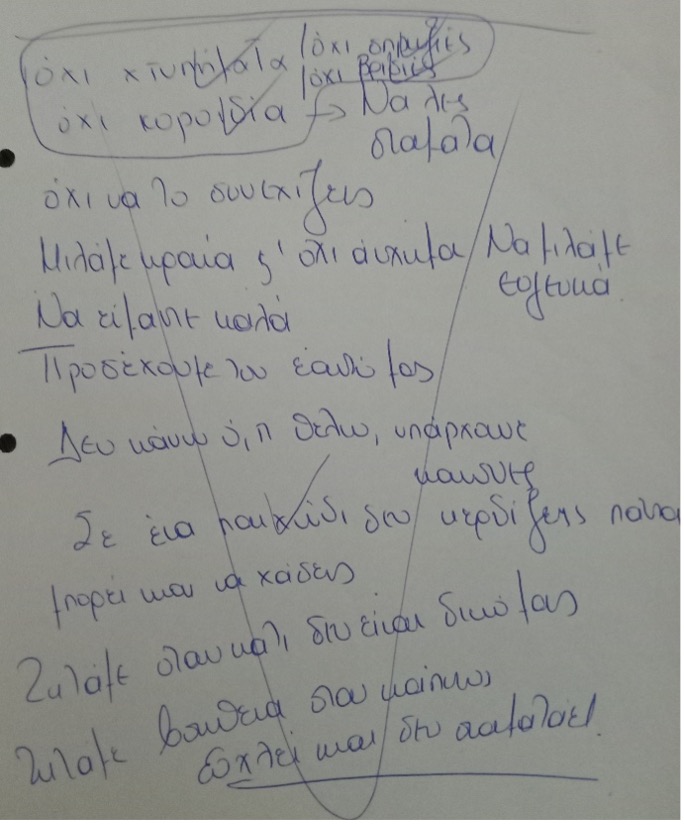 όχι χτυπήματα / όχι σπρωξιές
/ όχι βρισιές
όχι κοροϊδία → Να λες
σταμάτα
όχι να το συνεχίζεις
Μιλάμε ωραία κ' όχι άσχημα / Να μιλάμε
ευγενικά
Να είμαστε καλά
Προσέχουμε τον εαυτό μας
Δεν κάνω ό,τι θέλω, υπάρχουνε
κανόνες
Σε ένα παιχνίδι δεν κερδίζεις πάντα
μπορεί και να χάσεις
Ζητάμε όταν κάτι δεν είναι δικό μας
Ζητάμε βοήθεια όταν κάποιος
ενοχλεί και δεν σταματάει!